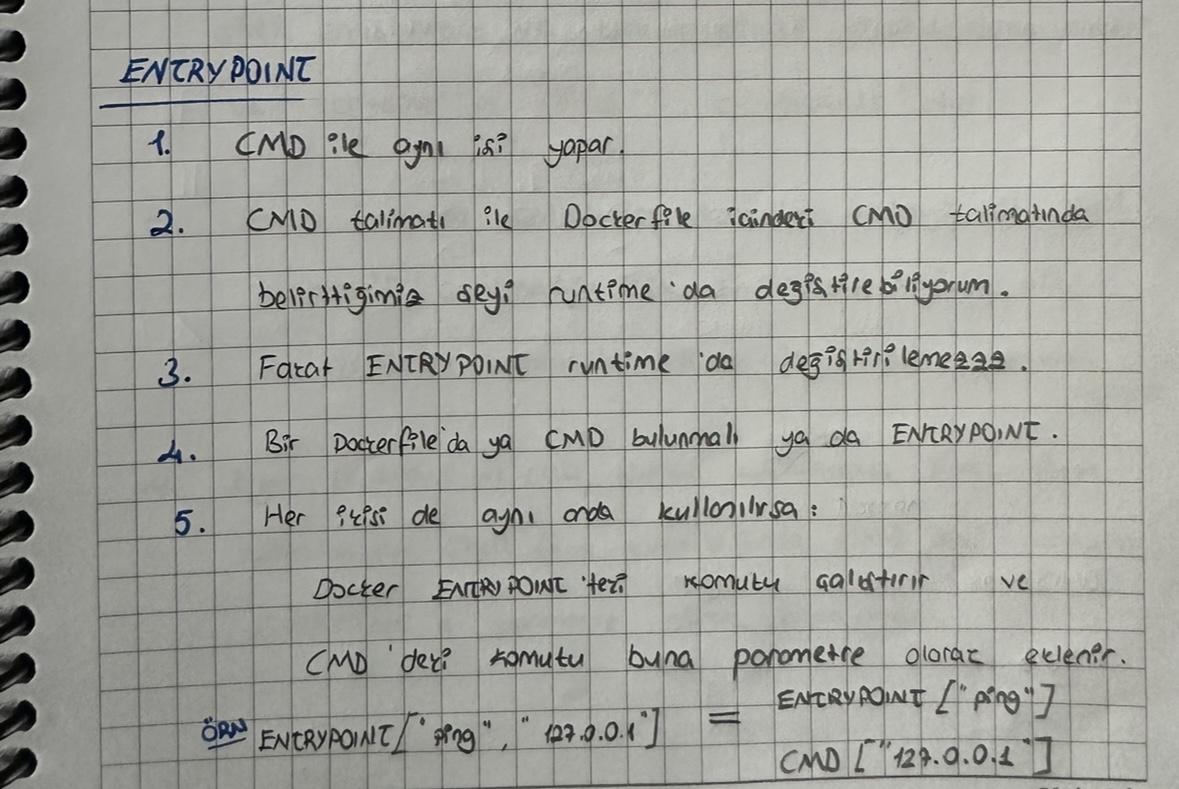 ENTRYPOINT
1. CMD ile aynı işi yapar.
2. CMD talimatı ile Dockerfile içindeki CMD talimatında
belirttiğimiz şeyi runtime'da değiştirebiliyorum.
3. Fakat ENTRYPOINT runtime'da değiştirilemezzz.
4. Bir Dockerfile'da ya CMD bulunmalı ya da ENTRYPOINT.
5. Her ikisi de aynı anda kullanılırsa:
Docker ENTRYPOINT'teki komutu çalıştırır ve
CMD'deki komutu buna parametre olarak eklenir.
ÖRN ENTRYPOINT["ping", "127.0.0.1"] = ENTRYPOINT ["ping"]
CMD ["127.0.0.1"]